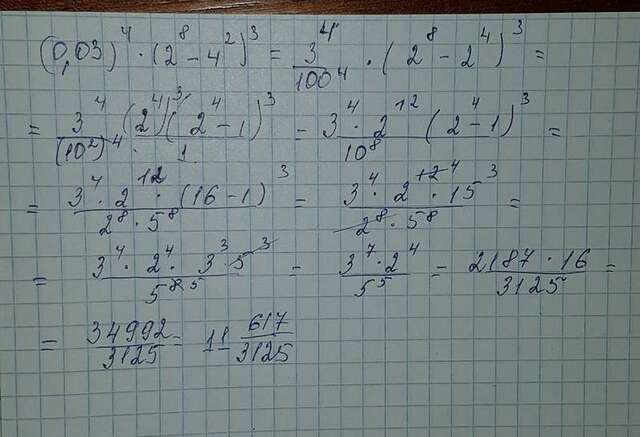 (0,03)^4 · (2^8 - 4^2)^3 = 3^4/100^4 · (2^8 - 2^4)^3 =
= 3^4/(10^2)^4 · (2^4)^3/1 (2^4 - 1)^3 = 3^4 · 2^12/10^8 (2^4 - 1)^3 =
= 3^4 · 2^12 · (16 - 1)^3/2^8 · 5^8 = 3^4 · 2^12 4 · 15^3/2^8 · 5^8 =
= 3^4 · 2^4 · 3^3 · 5^3/5^8 5 = 3^7 · 2^4/5^5 = 2187 · 16/3125 =
= 34992/3125 = 11 617/3125